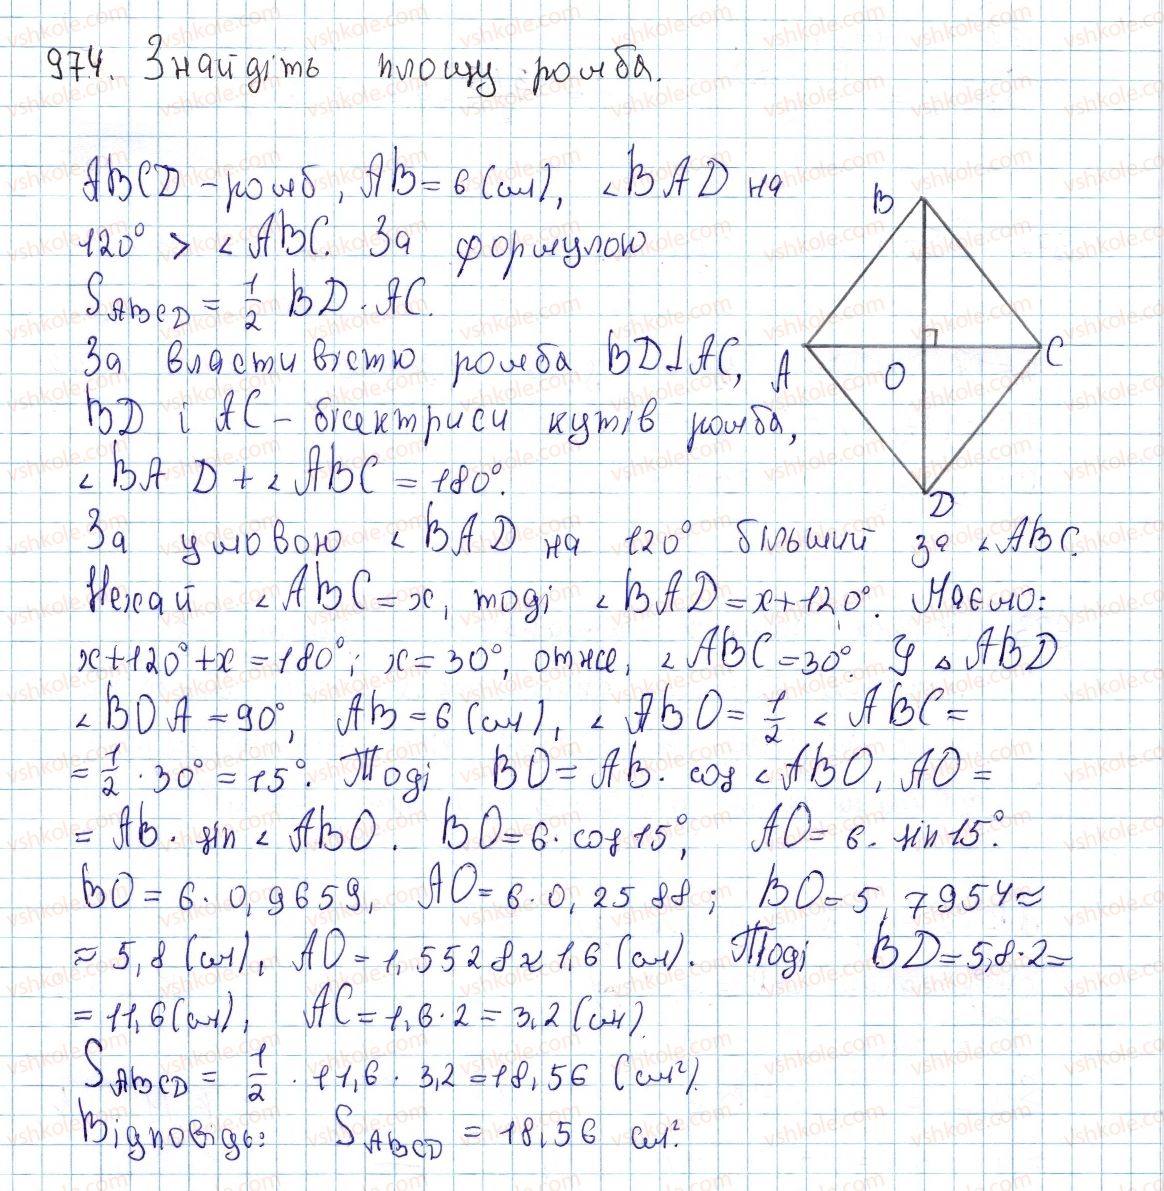 974. Знайдіть площу ромба.
ABCD - ромб, AB = 6 (см), ∠BAD на
120° > ∠ABC. За формулою
S_ABCD = 1/2 BD · AC.
За властивістю ромба BD⊥AC,
BD і AC - бісектриси кутів ромба,
∠BAD + ∠ABC = 180°.
За умовою ∠BAD на 120° більший за ∠ABC.
Нехай ∠ABC = x, тоді ∠BAD = x + 120°. Маємо:
x + 120° + x = 180°; x = 30°, отже, ∠ABC = 30°. У △ABD
∠BOA = 90°, AB = 6 (см), ∠ABO = 1/2 ∠ABC =
= 1/2 · 30° = 15°. Тоді BO = AB · cos ∠ABO, AO =
= AB · sin ∠ABO. BO = 6 · cos 15°, AO = 6 · sin 15°.
BO = 6 · 0,9659, AO = 6 · 0,2588; BO = 5,7954 ≈
≈ 5,8 (см), AO = 1,5528 ≈ 1,6 (см). Тоді BD = 5,8 · 2 =
= 11,6 (см), AC = 1,6 · 2 = 3,2 (см).
S_ABCD = 1/2 · 11,6 · 3,2 = 18,56 (см²).
Відповідь: S_ABCD = 18,56 см².
B
A
O
C
D
vshkole.com